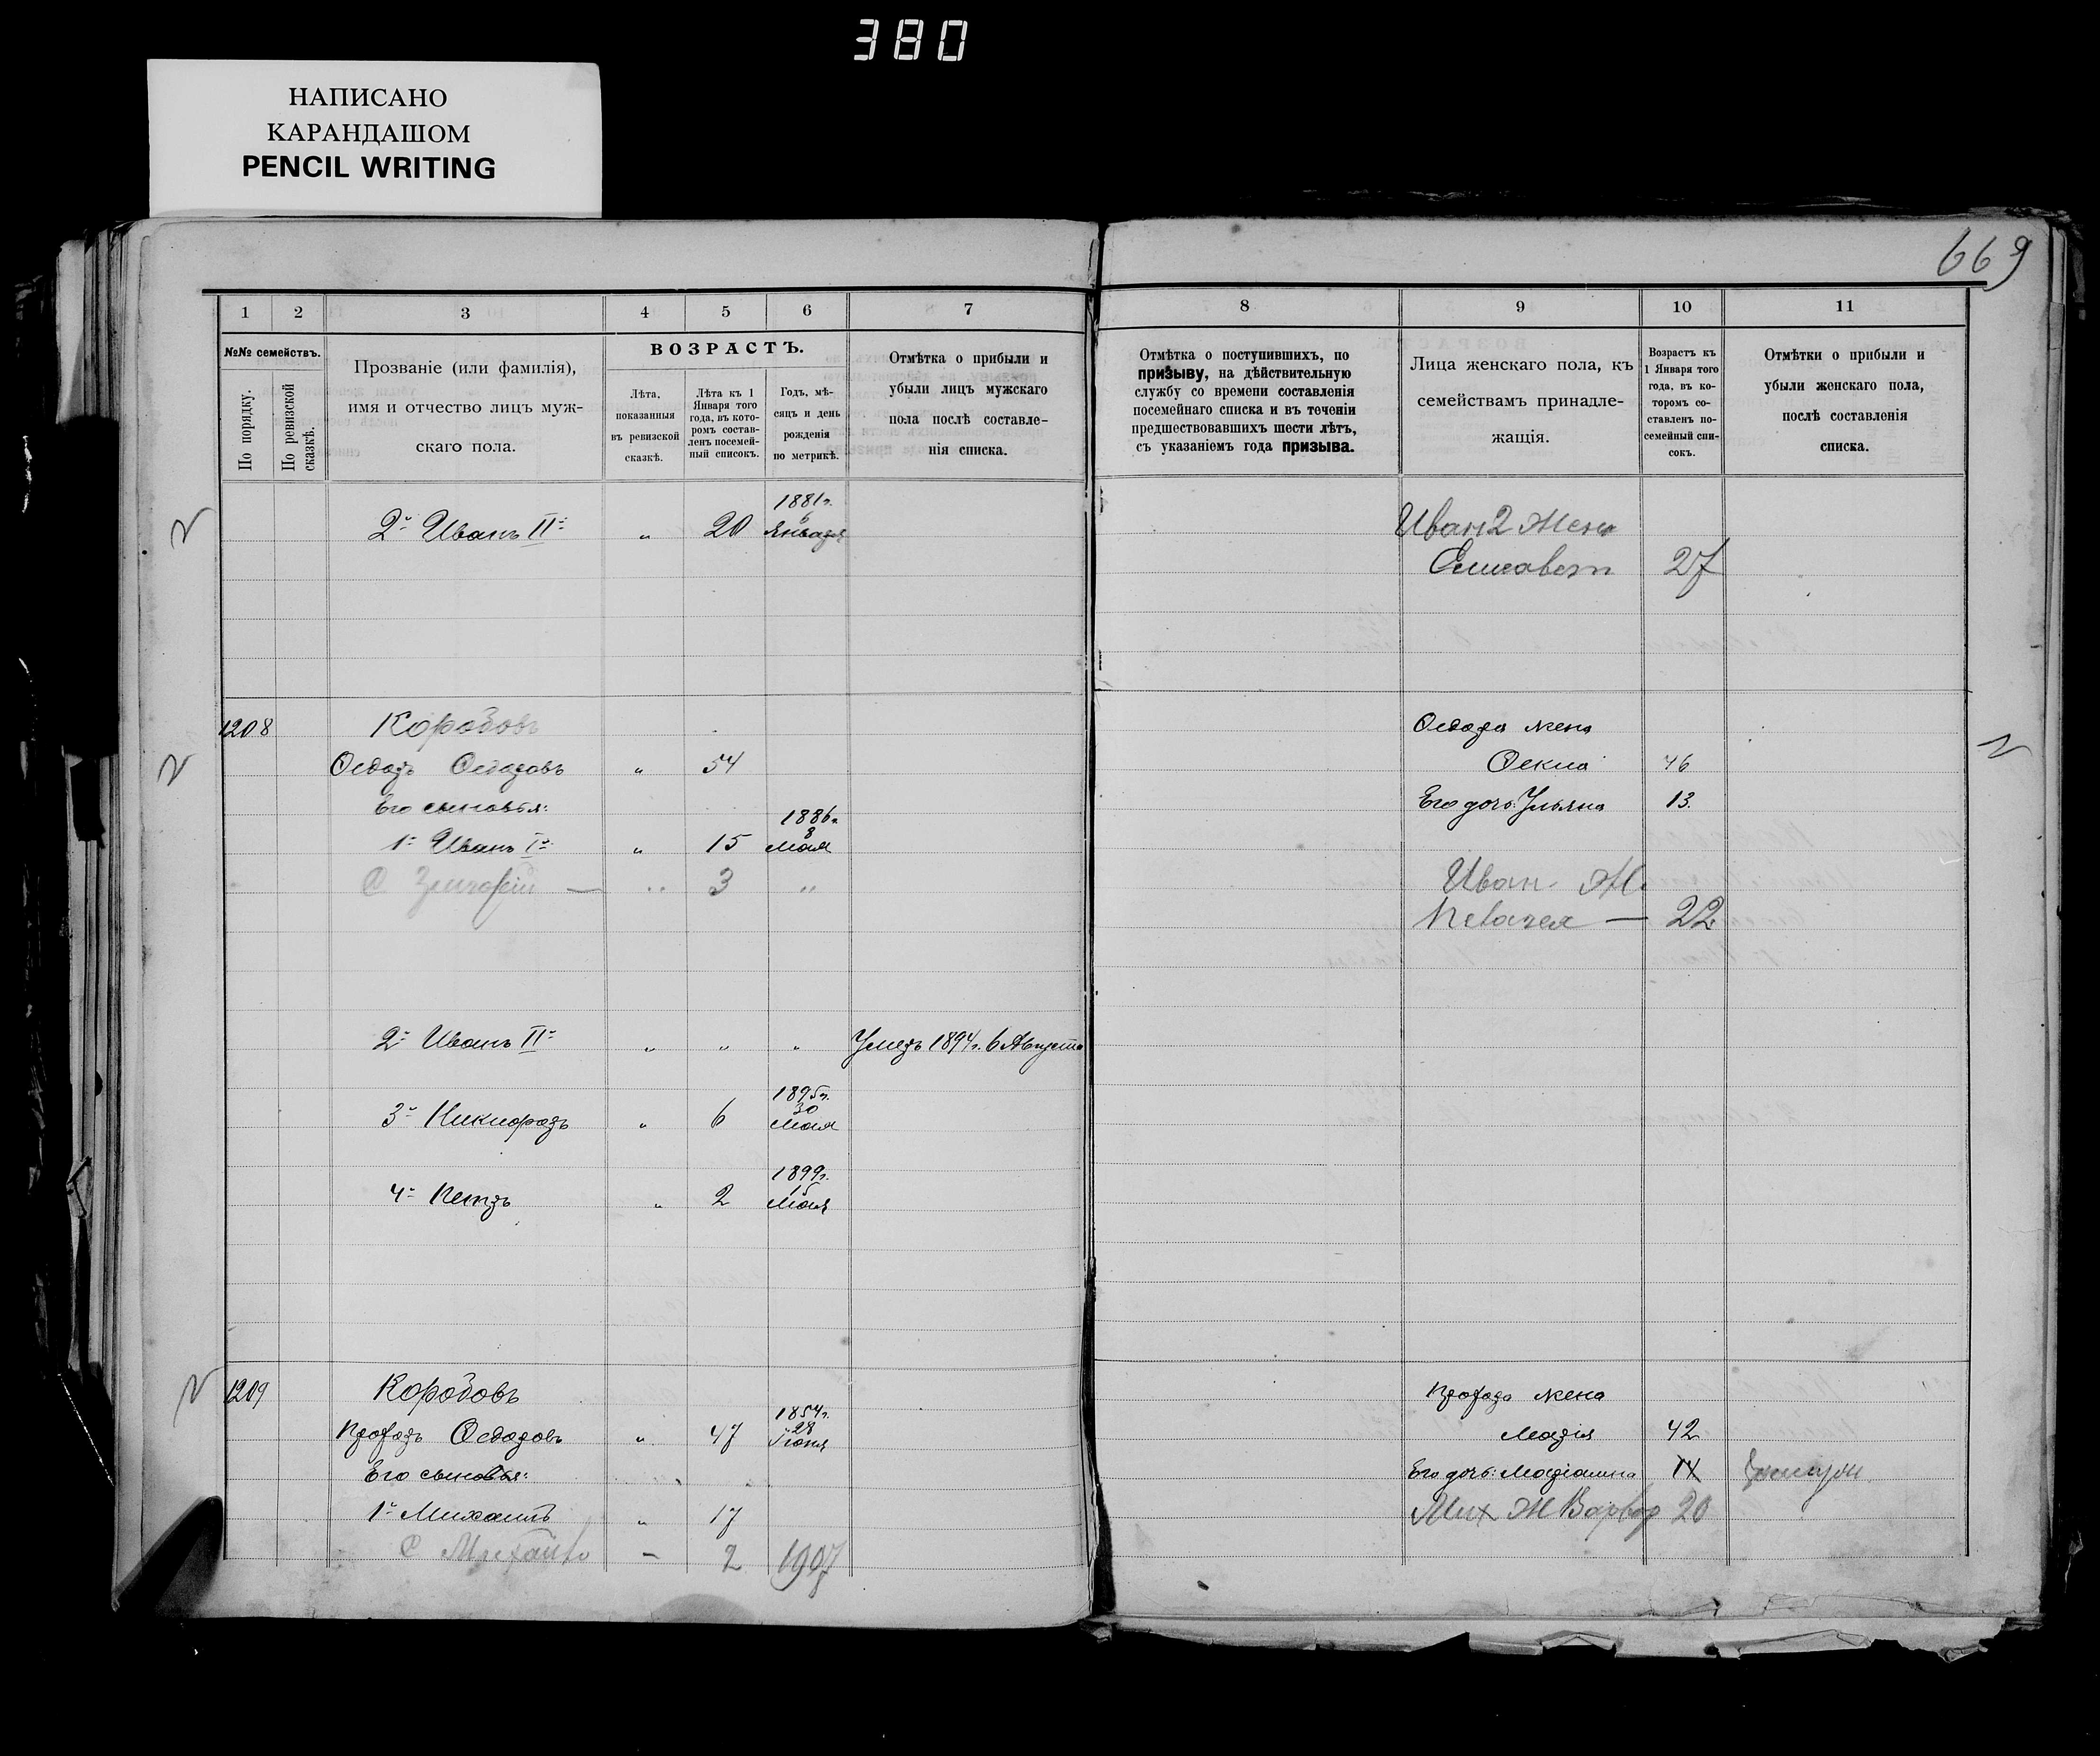 380
НАПИСАНО
КАРАНДАШОМ
PENCIL WRITING
669
1 2 3 4 5 6 7
№№ семействъ.
По порядку.
По ревизской сказкѣ.
Прозваніе (или фамилія),
имя и отчество лицъ муж-
скаго пола.
ВОЗРАСТЪ.
Лѣта,
показанныя
въ ревизской
сказкѣ.
Лѣта къ 1
Января того
года, въ кото-
ромъ состав-
ленъ посемей-
ный списокъ.
Годъ, мѣ-
сяцъ и день
рожденія
по метрикѣ.
Отмѣтка о прибыли и
убыли лицъ мужскаго
пола послѣ составле-
нія списка.
8 9 10 11
Отмѣтка о поступившихъ, по
призыву, на дѣйствительную
службу со времени составленія
посемейнаго списка и въ теченіи
предшествовавшихъ шести лѣтъ,
съ указаніемъ года призыва.
Лица женскаго пола, къ
семействамъ принадле-
жащія.
Возрастъ къ
1 Января того
года, въ ко-
торомъ со-
ставленъ по-
семейный спи-
сокъ.
Отмѣтки о прибыли и
убыли женскаго пола,
послѣ составленія
списка.
2й Иванъ IIй " 20 1881г. 6 Января
Иван 2 Жена
Елисавет 27
1208 Коробовъ
Ѳедоръ Ѳедоровъ " 54
Его сыновья:
1й Иванъ Iй " 15 1886г. 8 Мая
С Григорій — " 3 "
Ѳедора жена
Ѳекла 46
Его дочь: Ульяна 13
Иван. Ж.
Пелагея — 22
2й Иванъ IIй " " " Умеръ 1894г. 6 Августа
3й Никифоръ " 6 1895г. 30 Мая
4й Петръ " 2 1899г. 15 Мая
1209 Коробовъ
Ѳедоровъ " 47 1854г. 28 Іюня
Его сыновья:
1й Михаилъ " 17
С Михаилъ — 2 1907
жена
Марія 42
Его дочь: Маріамна 14
Мих Ж Варвар 20